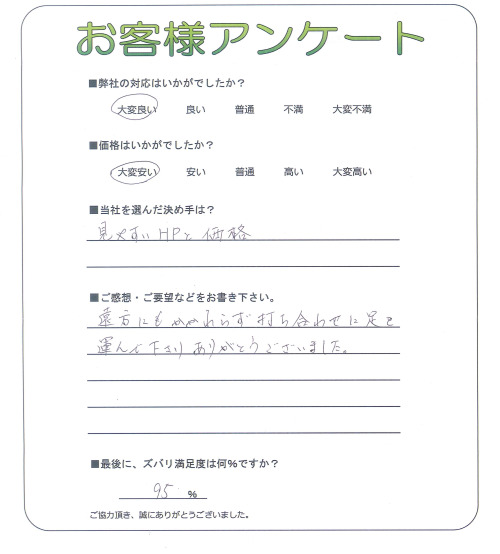 お客様アンケート
■弊社の対応はいかがでしたか？
大変良い 良い 普通 不満 大変不満
■価格はいかがでしたか？
大変安い 安い 普通 高い 大変高い
■当社を選んだ決め手は？
見やすいHPと価格
■ご感想・ご要望などをお書き下さい。
遠方にもかかわらず打ち合わせに足を
運んで下さりありがとうございました。
■最後に、ズバリ満足度は何%ですか？
95 %
ご協力頂き、誠にありがとうございました。